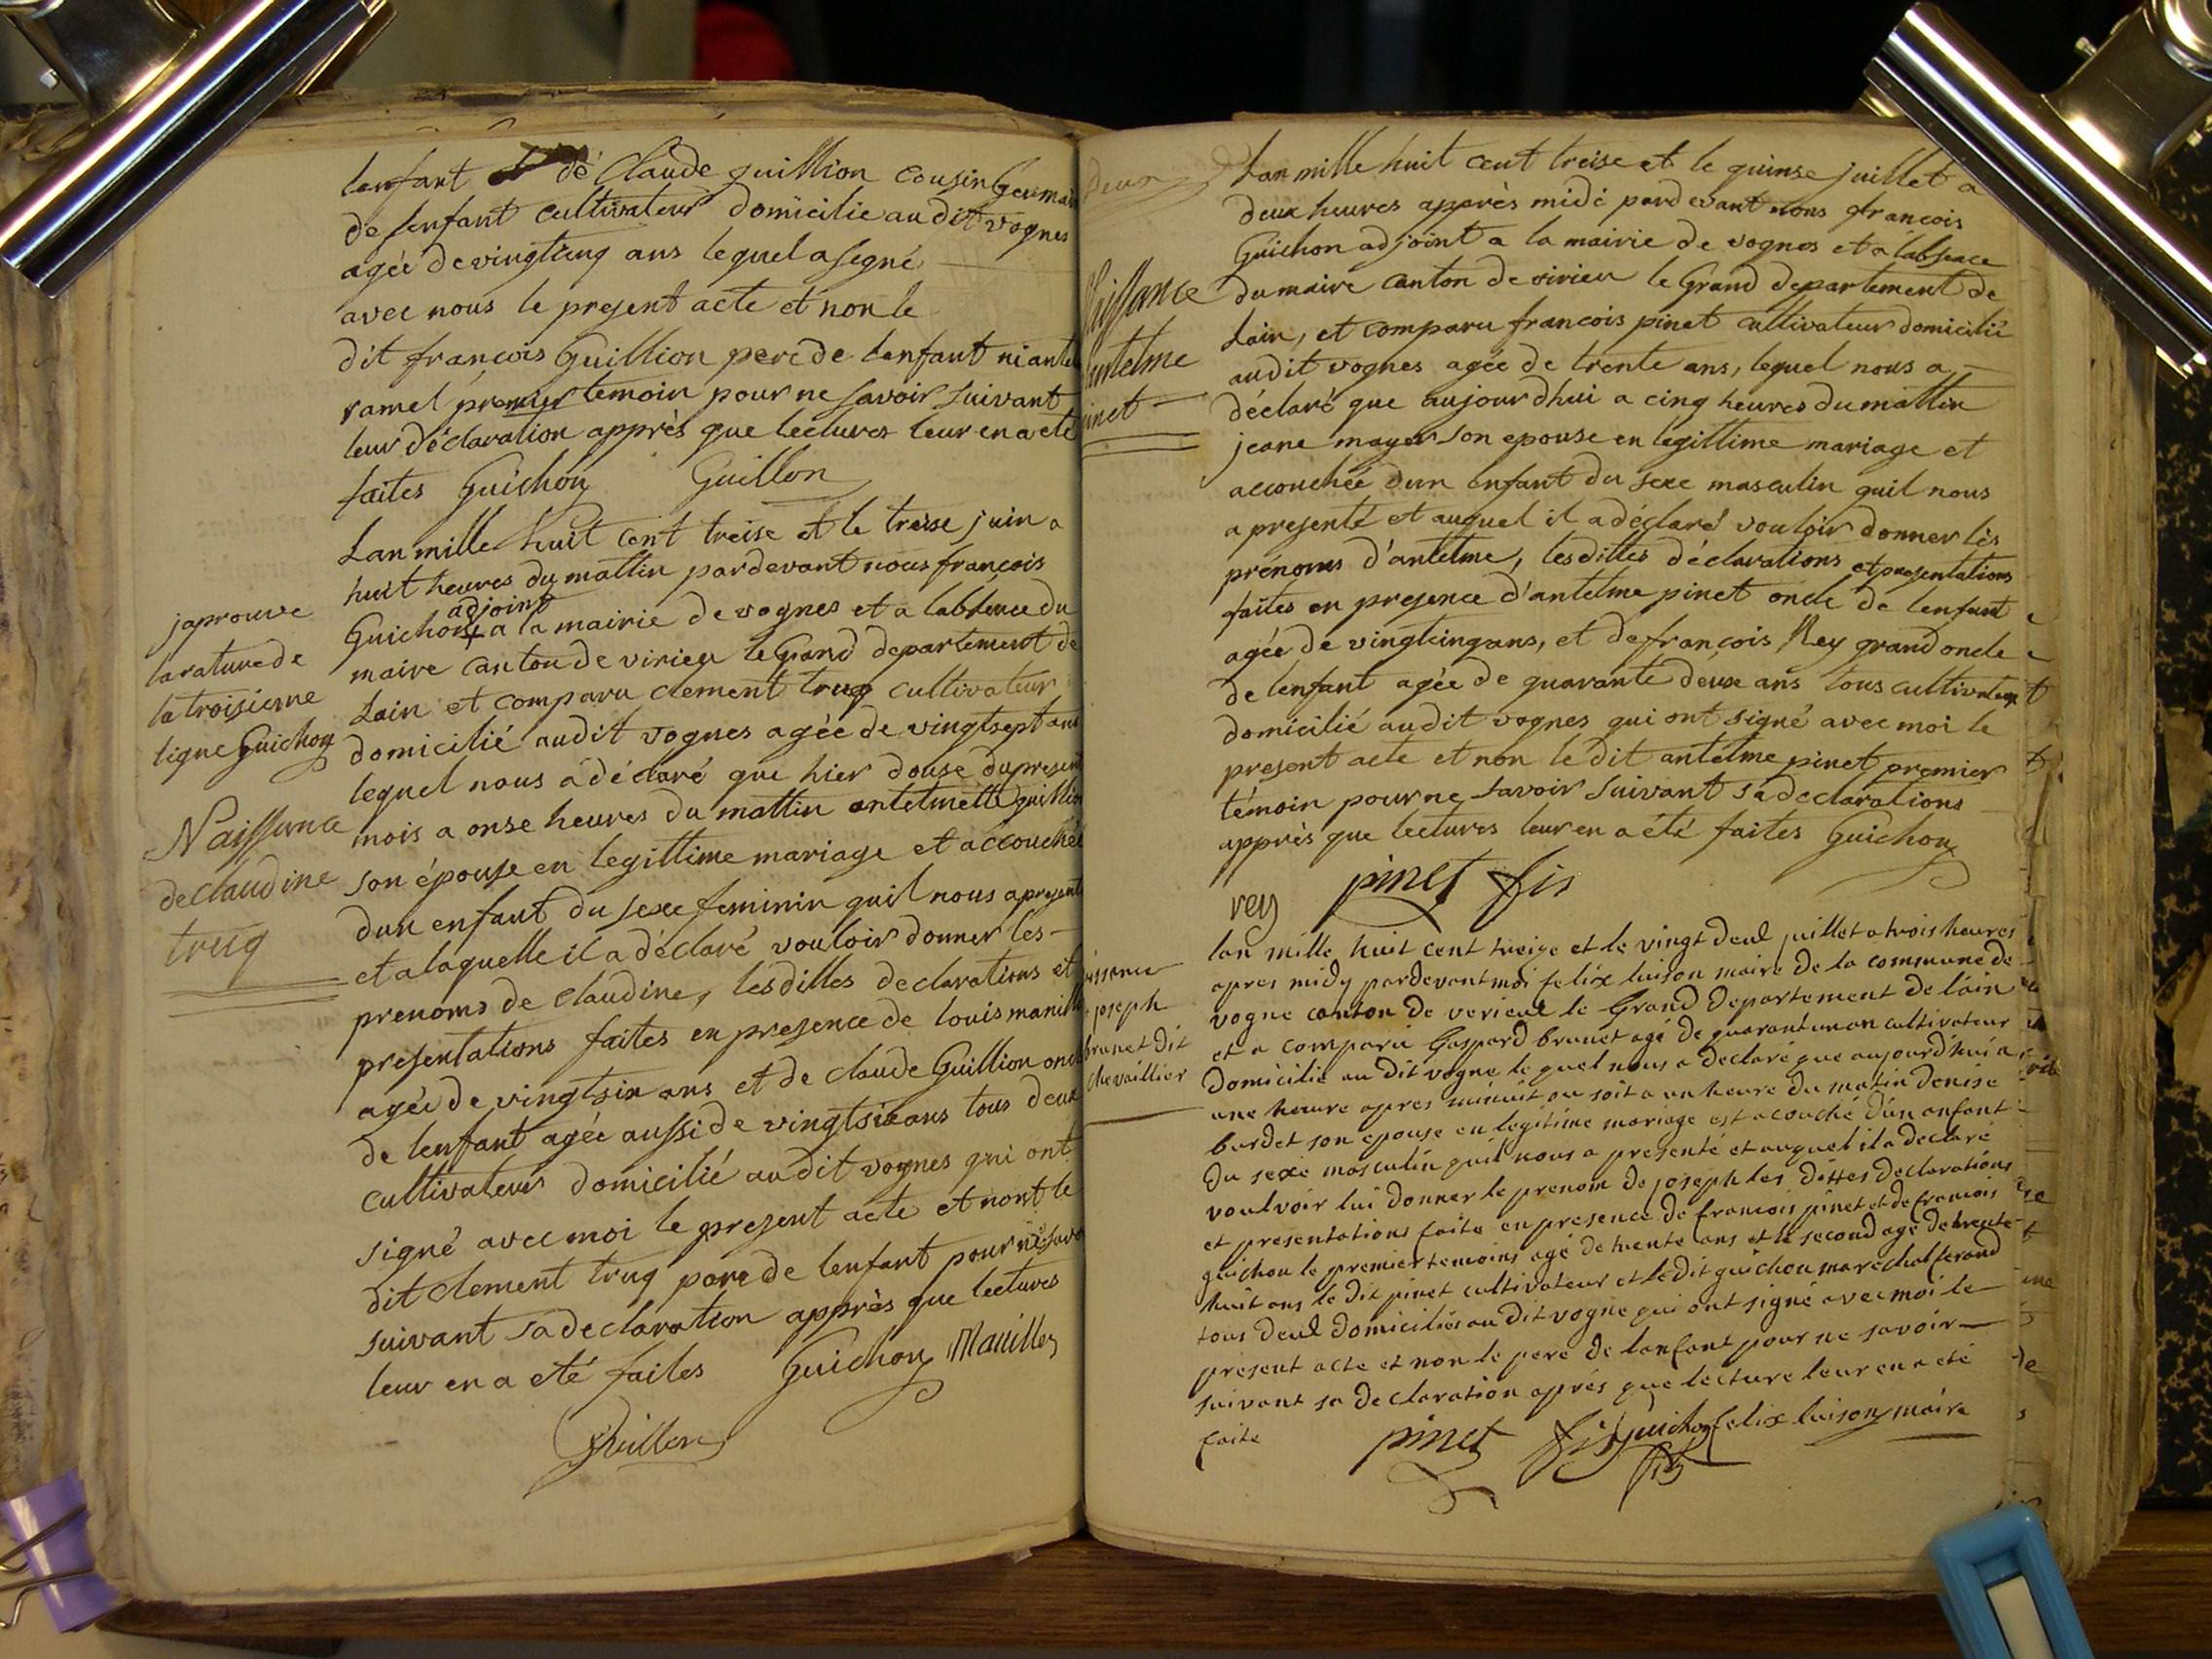 lenfant de Claude guillion cousin Germain
de lenfant cultivateur domicilie au dit vognes
agée de vingtcinq ans lequel a segné
avec nous le present acte et non le
dit francois Guillion pere de lenfant ni antel
ramel premier temoin pour ne savoir suivant
leur déclaration apprès que lectures leur en a eté
faites Guichon Guillon
Lan mille huit cent treise et le treise juin a
huit heures du mattin pardevant nous francois
adjoint
Guichon + a la mairie de vognes et a labsence du
maire canton de virieu le Grand departement de
Lain et comparu clement truq cultivateur
domicilié audit vognes agée de vingtsept ans
lequel nous a déclaré que hier douse du present
mois a onse heures du mattin antelmette guillion
son épouse en legittime mariage et accouchée
dun enfant du sexe feminin quil nous a present
et a laquelle il a déclaré vouloir donner les
prenoms de Claudine, lesdittes declarations et
presentations faites en presence de louis manill
agée de vingtsix ans et de claude Guillion oncl
de lenfant agée aussi de vingtsix ans tous deux
cultivateurs domicilié audit vognes qui ont
signé avec moi le present acte et nont le
dit clement truq pere de lenfant pour ne savo
suivant sa declaration apprès que lectures
leur en a eté faites Guichon Manillez
Guillon
japrouve
la rature de
la troisieme
ligne Guichon
Naissance
de claudine
truq
deux
Lan mille huit cent treise et le quinse juillet a
deux heures apprès midi pardevant nous francois
Guichon adjoint a la mairie de vognes et a labsence
du maire canton de virieu le Grand departement de
Lain, et comparu francois pinet cultivateur domicilié
audit vognes agée de trente ans, lequel nous a
déclaré que aujourdhui a cinq heures du mattin
jeane mayer son epouse en legittime mariage et
accouchée dun enfant du sexe masculin quil nous
a presenté et auquel il a déclaré vouloir donner les
prénoms d'antelme, lesdittes déclarations et presentations
faites en presence d'antelme pinet oncle de lenfant
agée de vingtcinq ans, et de françois Rey grand oncle
de lenfant agée de quarante deux ans tous cultivateurs
domicilié audit vognes qui ont signé avec moi le
present acte et non le dit antelme pinet premier
témoin pour ne savoir suivant sa declarations
apprès que lectures leur en a été faites Guichon
rey pinet fis
aissance
antelme
inet
lan mille huit cent treize et le vingt deul juillet a trois heures
apres midy pardevant moi felix luison maire de la commune de
vogne canton de verieul le Grand Departement de lain
et a comparu Gaspard brunet agé de quarant un an cultivateur
Domicilié au dit vogne le quel nous a declaré que aujourd'hui a
une heure apres minuit ou soit a un heure du matin denise
burdet son epouse en legitime mariage est acouché d'un anfant
du sexe masculin quil nous a presenté et auquel il a declaré
voulvoir lui donner le prenom de joseph les dittes declarations
et presentations faite en presence de francois pinet et de francois
guichon le premier temoins agé de trente ans et le second agé de trente
huit ans le dit pinet cultivateur et le dit guichon marechal ferand
tous deul domiciliés au dit vogne qui ont signé avec moi le
present acte et non le pere de lanfant pour ne savoir
suivant sa declaration aprés que lecture leur en a eté
faite pinet fis guichon felix luison maire
fis
issance
joseph
brunet dit
chevaillier